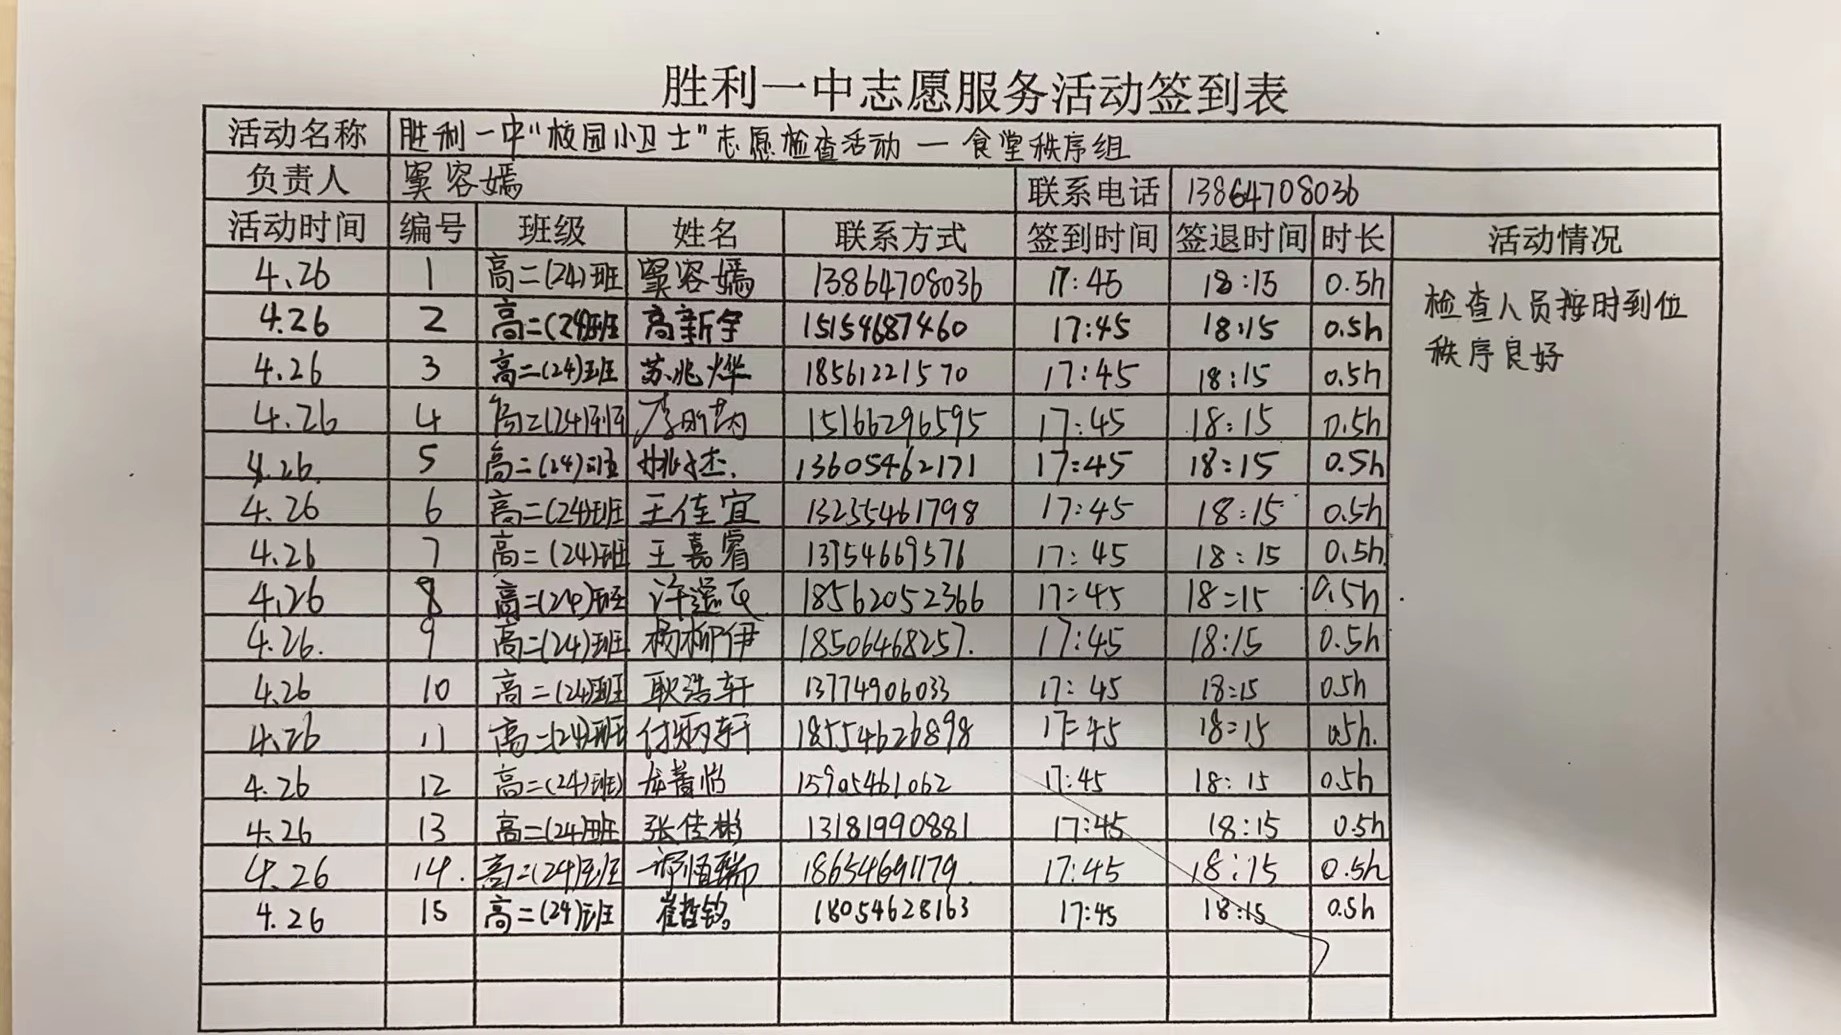 胜利一中志愿服务活动签到表
活动名称 胜利一中“校园小卫士”志愿检查活动 — 食堂秩序组
负责人 窦容嫣 联系电话 13864708036
活动时间 编号 班级 姓名 联系方式 签到时间 签退时间 时长 活动情况
4.26 1 高二(24)班 窦容嫣 13864708036 17:45 18:15 0.5h
检查人员按时到位
秩序良好
4.26 2 高二(24)班 高新宇 15154687460 17:45 18:15 0.5h
4.26 3 高二(24)班 苏兆烨 18561221570 17:45 18:15 0.5h
4.26 4 高二(24)班 15166296595 17:45 18:15 0.5h
4.26. 5 高二(24)班 姚文杰. 13605462171 17:45 18:15 0.5h
4.26 6 高二(24)班 王佳宜 13255461798 17:45 18:15 0.5h
4.26 7 高二(24)班 王嘉睿 13954669576 17:45 18:15 0.5h
4.26 8 高二(24)班 18562052366 17:45 18:15 0.5h
4.26. 9 高二(24)班 杨柳伊 18506468257. 17:45 18:15 0.5h
4.26 10 高二(24)班 耿浩轩 13774906033 17:45 18:15 0.5h
4.26 11 高二(24)班 付炳轩 18554626898 17:45 18:15 0.5h.
4.26 12 高二(24)班 15905461062 17:45 18:15 0.5h
4.26 13 高二(24)班 张佳彬 13181990881 17:45 18:15 0.5h
4.26 14. 高二(24)班 18654691179. 17:45 18:15 0.5h
4.26 15 高二(24)班 崔哲铭 18054628163 17:45 18:15 0.5h